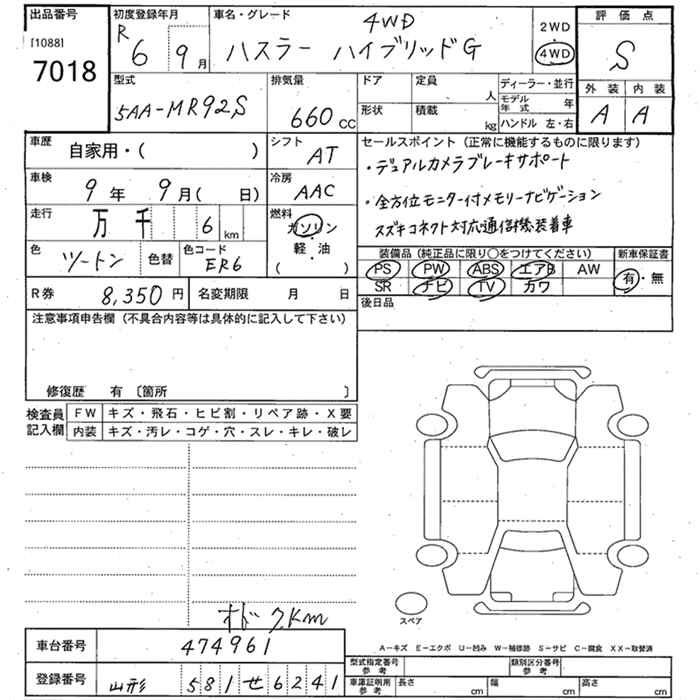 出品番号 初度登録年月 車名・グレード 4WD 2WD 評価点
[1088] R 6 9月 ハスラー ハイブリッドG 4WD S
7018
型式 排気量 ドア 定員 人 ディーラー・並行 外装 内装
5AA-MR92S 660cc 形状 積載 kg モデル年式 年 A A
ハンドル 左・右
車歴 自家用・( ) シフト AT セールスポイント (正常に機能するものに限ります)
・デュアルカメラブレーキサポート
車検 9年 9月( 日) 冷房 AAC
・全方位モニター付メモリーナビゲーション
走行 万 千 6 km 燃料 ガソリン 軽・油 ( )
スズキコネクト対応通信機装着車
色 ツートン 色替 色コード ER6
装備品 (純正品に限り○をつけてください) 新車保証書
PS PW ABS エアB AW 有・無
SR ナビ TV カワ
R券 8,350円 名変期限 月 日 後日品
注意事項申告欄 (不具合内容等は具体的に記入して下さい)
修復歴 有 〔箇所 〕
検査員記入欄 FW キズ・飛石・ヒビ割・リペア跡・X要
内装 キズ・汚レ・コゲ・穴・スレ・キレ・破レ
スペア
オド 7Km
A-キズ E-エクボ U-凹み W-補修跡 S-サビ C-腐食 XX-取替済
車台番号 474961
型式指定番号 参考 類別区分番号 参考
登録番号 山形 581 せ 6241
車庫証明用 参考 長さ cm 幅 cm 高さ cm